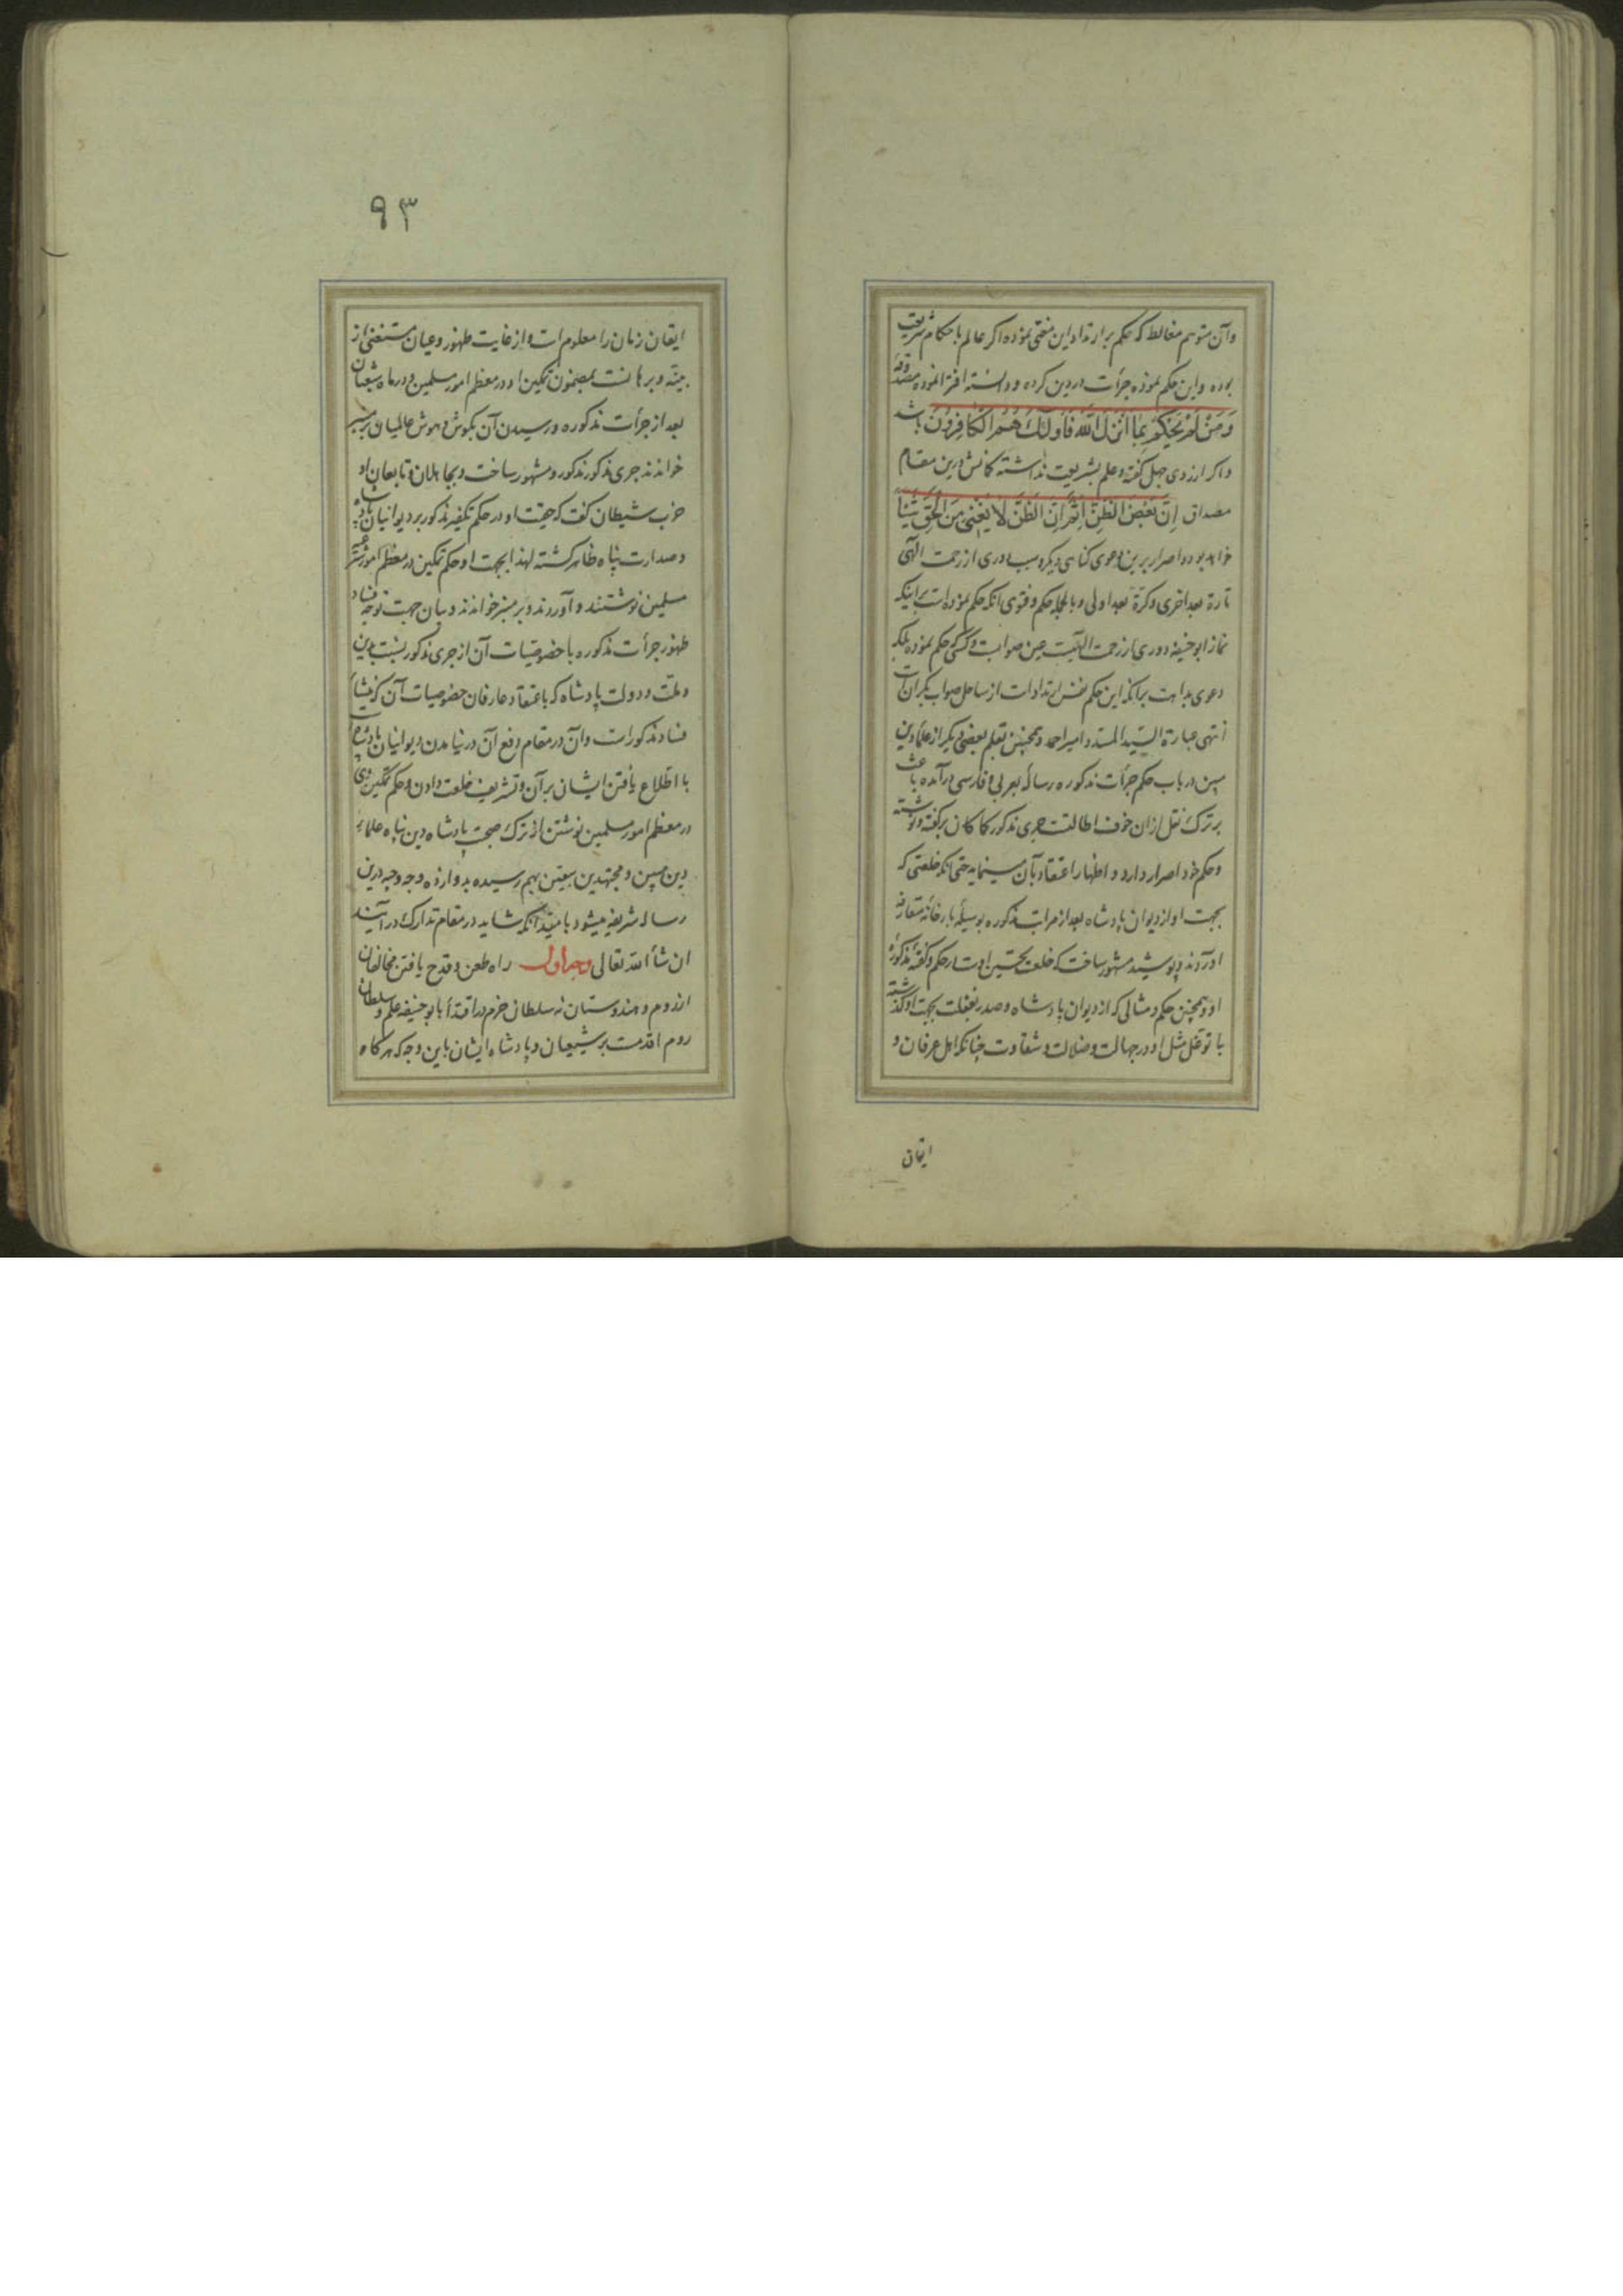 وآن متوهم مغالط که حکم بر ارتداد این مفتی نموده اگر عالم باحکام شریعت
بوده واین حکم نموده جرأت در دین کرده ودانسته افترا نموده مصدوقه
وَمَنْ لَمْ يَحْكُمْ بِمَا اَنْزَلَ اللّٰهُ فَاُولٰئِكَ هُمُ الْكَافِرُونَ باشد
واگر از روی جهل گفته وعلم بشریعت نداشته کمانش درین مقام
مصداق اِنَّ بَعْضَ الظَّنِّ اِثْمٌ اِنَّ الظَّنَّ لَا يُغْنِي مِنَ الْحَقِّ شَيْئاً
خواهد بود واصرار برین دعوی کناهی دیگر وسبب دوری از رحمت الهی
تارة بعد اخری وکرّة بعد اولی وبالجمله حکم وفتوی آنکه حکم نموده است براینکه
نماز ابوحنیفه دوری از رحمت الٓهیست عین صوابست وکسی حکم نموده بلکه
دعوی بداهت برآنکه این حکم نفس ارتداد است از ساحل صواب بکران است
انتهی عبارة السّید السّند امیر احمد وهمچنین بقلم بعضی دیگر از علمای دین
مبین در باب حکم جرأت مذکوره رساله بعربی وفارسی درآمده باعث
بر ترک نقل ازان خوف اطالتست جری مذکور کماکان برگفته ونوشته
وحکم خود اصرار دارد واظهار اعتقاد بآن مینماید حتی آنکه خلعتی که
بجهت او از دیوان پادشاه بعد از مراتب مذکوره بوسیلهٔ بارخانهٔ متعارفه
آوردند وپوشید مشهور ساخت که خلعت تحسین اوست در حکم وگفتهٔ مذکورهٔ
او وهمچنین حکم ومثالی که از دیوان پادشاه وصدر بغفلت بجهت او گذشته
با توغل مثل او در جهالت وضلالت وشقاوت چنانکه اهل عرفان و
ایقان
٩٣
ایقان زمان را معلوم است واز غایت ظهور وعیان مستغنی از
بینّه وبرهانست بمضمون تمکین او در معظم امور مسلمین ودر ماه شعبان
بعد از جرأت مذکوره ورسیدن آن بگوش وهوش عالمیان بر منبر
خواندند جری مذکور مذکور ومشهور ساخت وبجاهلان وتابعان او
حزب شیطان گفت که حقیّت او در حکم تکفیر مذکور بر دیوانیان پادشاه
وصدارت پناه ظاهر گشته لهذا بجهت او حکم تمکین در معظم امور شرعیّه
مسلمین نوشتند وآوردند وبر منبر خواندند وبیان جهت توجّه فساد
ظهور جرأت مذکوره با خصوصیّات آن از جری مذکور نسبت بدین
وملّت ودولت پادشاه که باعتقاد عارفان خصوصیات آن که منشأ
فساد مذکور است وآن در مقام دفع آن در نیامدن دیوانیان پادشاه است
با اطّلاع یافتن ایشان بر آن وتشریف خلعت دادن وحکم تمکین وی
در معظم امور مسلمین نوشتن از ترک صحبت پادشاه دین پناه علماء
دین مبین ومجتهدین بیقین بهم رسیده بدوازده وجه وجیه درین
رساله شریفه میشود بامید آنکه شاید در مقام تدارک درآیند
ان شأ الله تعالی وجه اول راه طعن وقدح یافتن مخالفان
از روم وهندوستان نه سلطان خرم در اقتدأ بابوحنیفه علم وسلطان
روم اقدمست بر شیعیان وپادشاه ایشان باین وجه که هرگاه